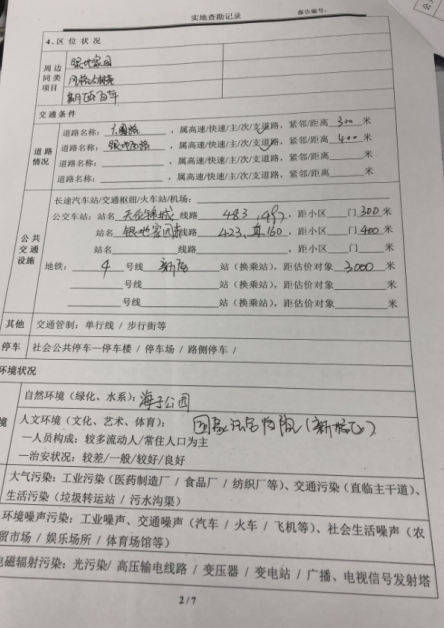 实地查勘记录
报告编号:
4.区位状况
周边同类项目
银地家园
交通条件
道路情况
道路名称: ,属高速/快速/主/次/支道路,紧邻/距离 300 米
道路名称: ,属高速/快速/主/次/支道路,紧邻/距离 400 米
道路名称: ,属高速/快速/主/次/支道路,紧邻/距离 米
道路名称: ,属高速/快速/主/次/支道路,紧邻/距离 米
公共交通设施
长途汽车站/交通枢纽/火车站/机场:
公交车站: 站名 线路 483, ,距小区 门 300 米
站名 银地家园 线路 423, 160 ,距小区 门 400 米
站名 线路 ,距小区 门 米
地铁: 4 号线 新宫 站(换乘站),距估价对象 3000 米
号线 站(换乘站),距估价对象 米
号线 站(换乘站),距估价对象 米
其他 交通管制:单行线 / 步行街等
停车 社会公共停车—停车楼 / 停车场 / 路侧停车 /
环境状况
自然环境(绿化、水系): 海子公园
境 人文环境(文化、艺术、体育): 国家法官学院(新校区)
—人员构成:较多流动人/常住人口为主
—治安状况:较差/一般/较好/良好
大气污染:工业污染(医药制造厂 / 食品厂 / 纺织厂等)、交通污染(直临主干道)、
生活污染(垃圾转运站 / 污水沟渠)
环境噪声污染:工业噪声、交通噪声(汽车 / 火车 / 飞机等)、社会生活噪声(农
贸市场 / 娱乐场所 / 体育场馆等)
电磁辐射污染:光污染/ 高压输电线路 / 变压器 / 变电站 / 广播、电视信号发射塔
2/7